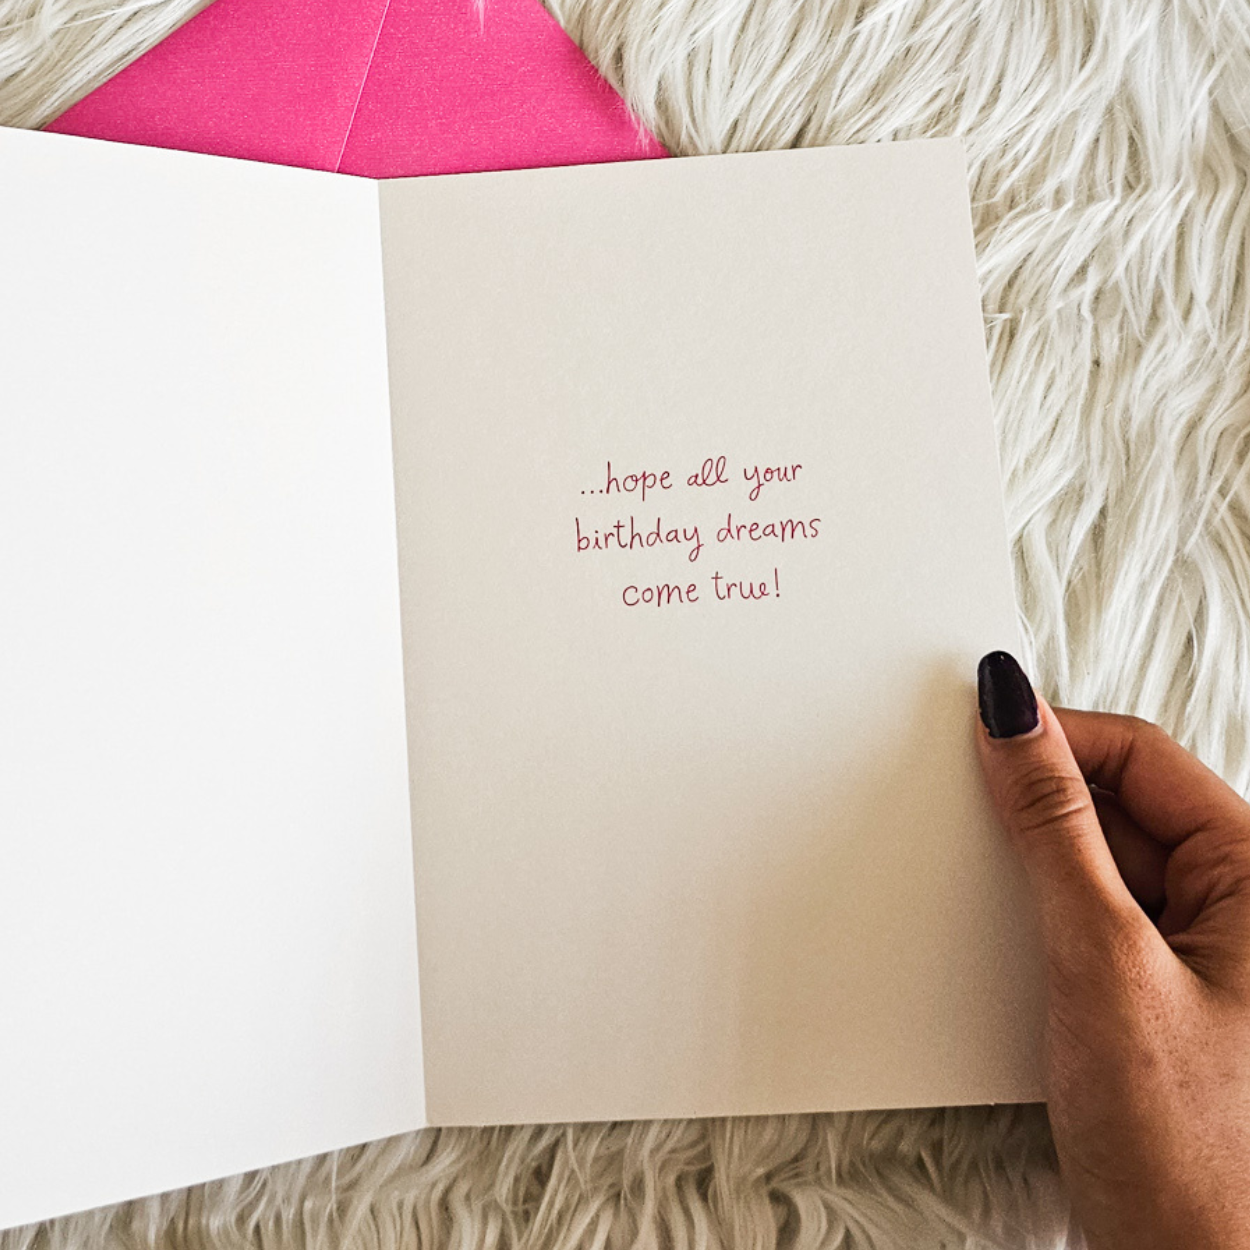 ...hope all your
birthday dreams
come true!